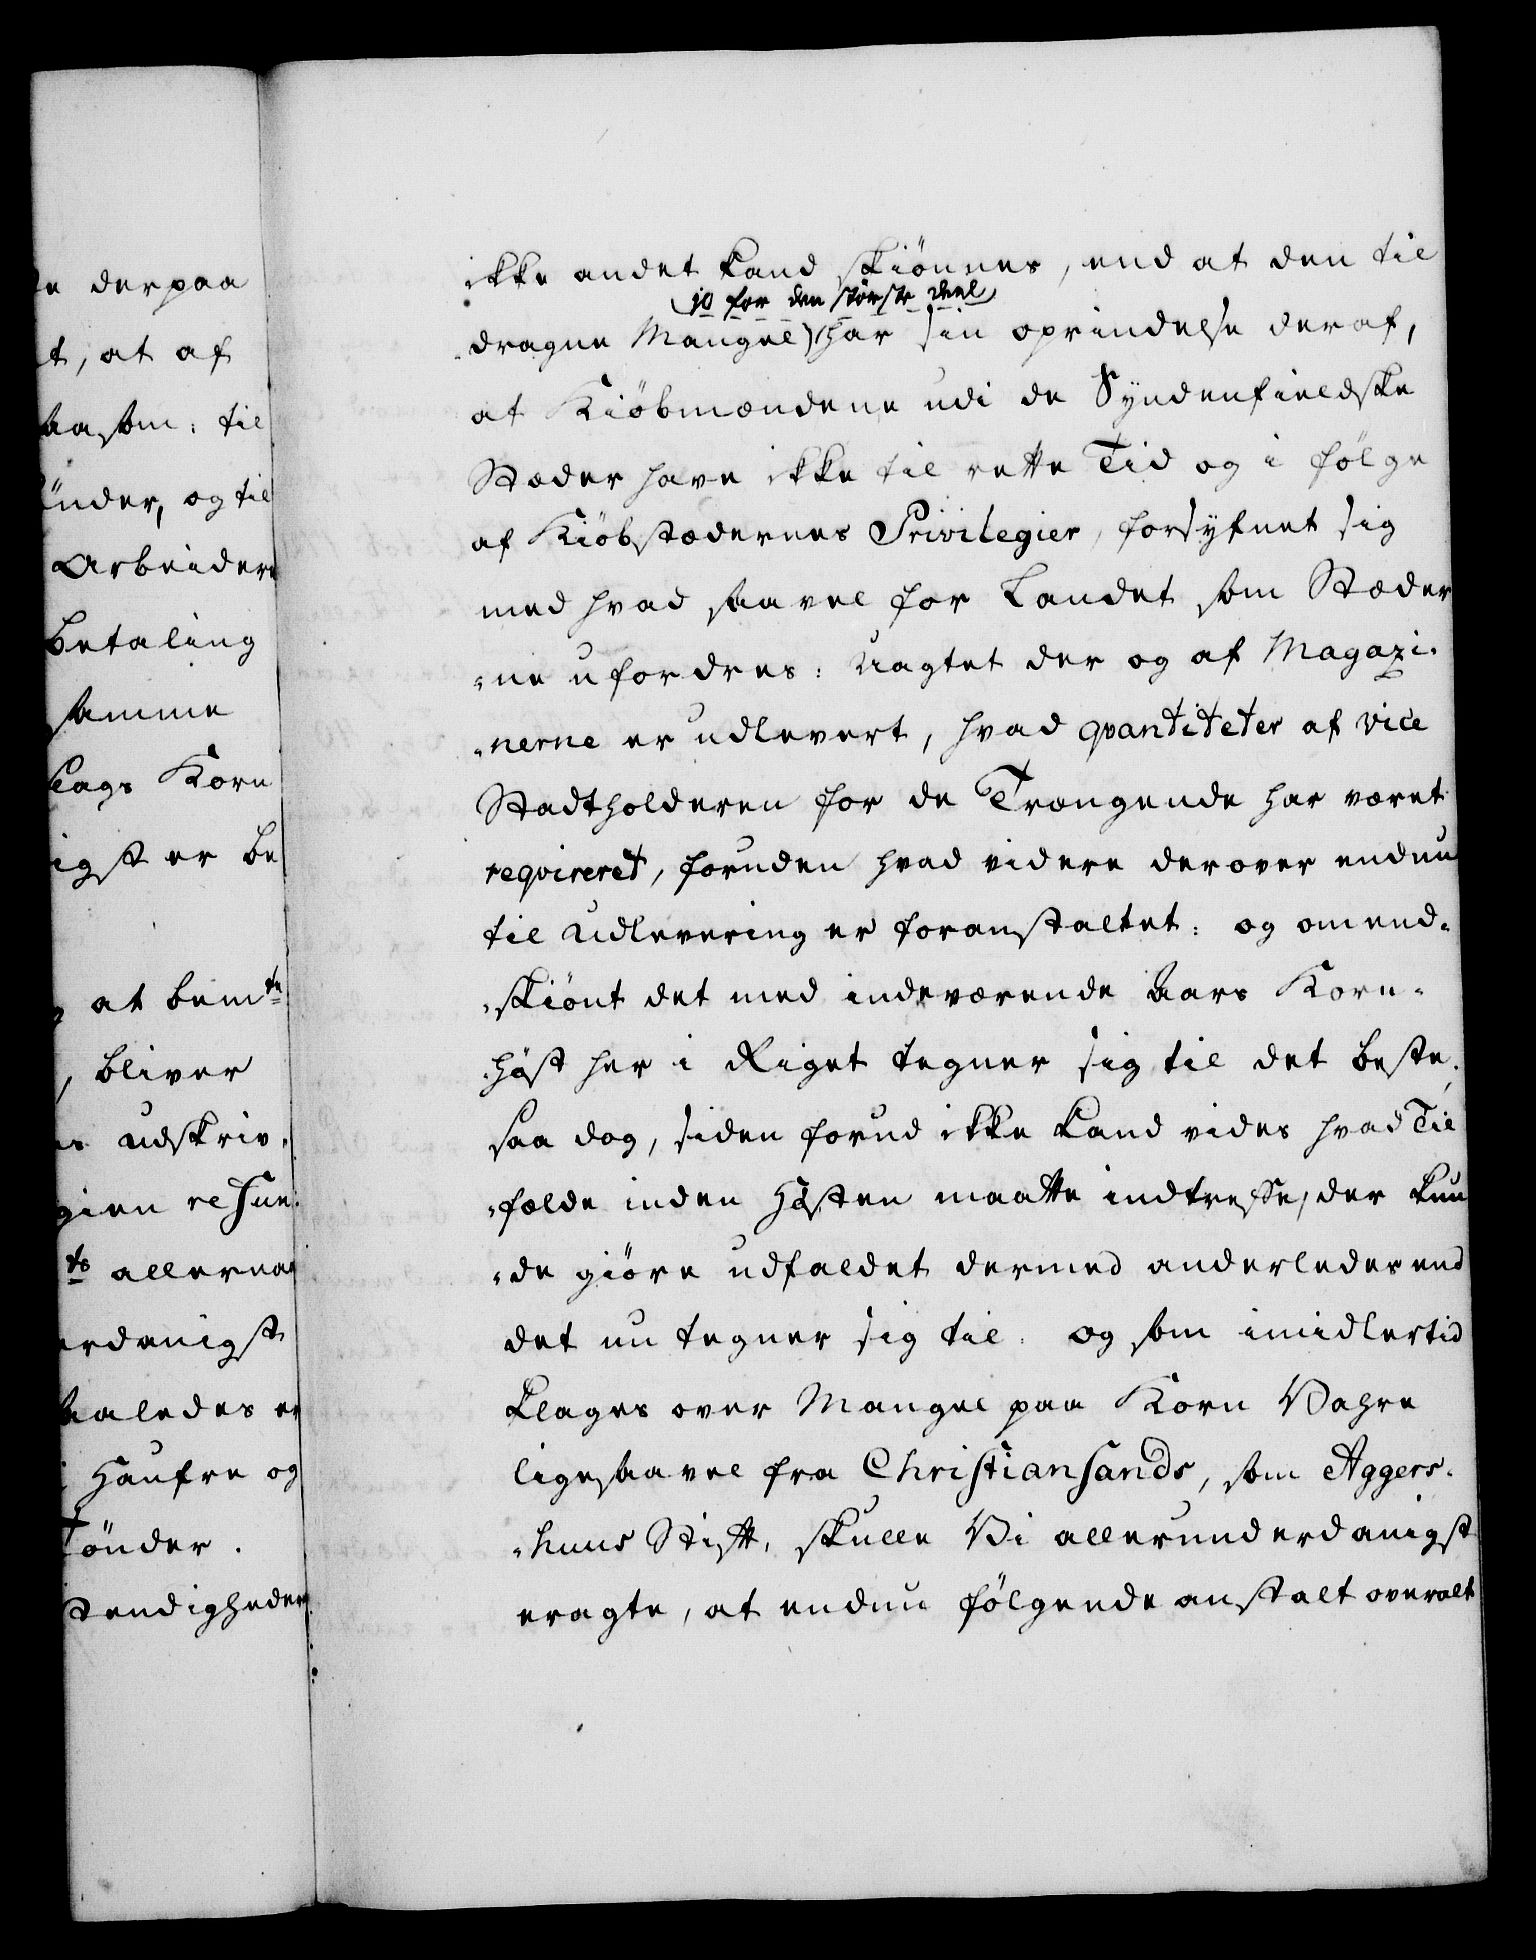 de derpaa
t, at af
saasom: til
ünder, og til
Arbeidere
betaling
samme
Slags Korn
igst er be
at bemte
, bliver
udskriv-
gien resue
ts allernaa
erdanigst
saaledes er
Haufre og
Tönder.
stændigheder
ikke andet kand skiönnes, end at den til
jo for den störste deel
dragne Mangel) har sin oprindelse deraf,
at Kiöbmændene udi de Syndenfieldske
Stæder have ikke til rette Tid og i fölge
af Kiöbstædernes Privilegier, forsyfnet sig
med hvad saavel for Landet som Stæder
-ne ufordres: Uagtet der og af Magazi-
-nerne er udlevert, hvad qvantiteter af vice
Stadtholderen for de Trængende har været
reqvireret, foruden hvad videre derover endnu
til Udlevering er foranstaltet: og omend-
-skiönt det med indeværende Aars Korn-
-höst her i Riget tegner sig til det beste;
saa dog, siden forud ikke kand vides hvad Til
-fælde inden Hösten maatte indtreffe, der kun
-de giöre udfaldet dermed anderledes end
det nu tegner sig til. og som imidlertid
klages over Mangel paa Korn Vahre
ligesaavel fra Christiansands, som Aggers-
-huus Stift, skulle Vi allerunderdanigst
eragte, at endnu fölgende anstalt overalt